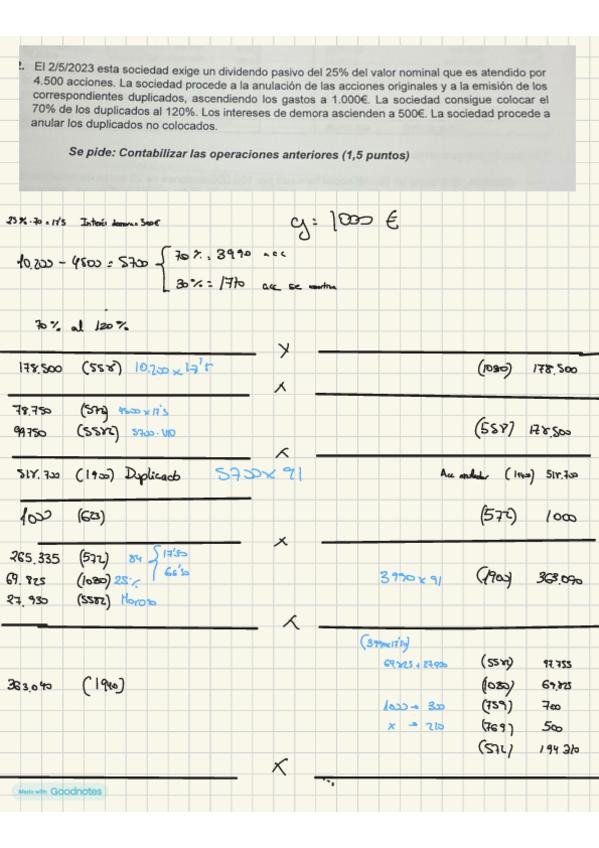 2. El 2/5/2023 esta sociedad exige un dividendo pasivo del 25% del valor nominal que es atendido por
4.500 acciones. La sociedad procede a la anulación de las acciones originales y a la emisión de los
correspondientes duplicados, ascendiendo los gastos a 1.000€. La sociedad consigue colocar el
70% de los duplicados al 120%. Los intereses de demora ascienden a 500€. La sociedad procede a
anular los duplicados no colocados.
Se pide: Contabilizar las operaciones anteriores (1,5 puntos)
25% · 70 = 17'5 Interés demora 500€ g: 1000 €
10.200 - 4500 = 5700 70%: 3990 acc
30% = 1710 acc se
70% al 120%
178.500 (558) 10.200 x 17'5 (1030) 178.500
78.750 (572) 4500 x 17'5
99750 (5582) (558) 178.500
518.700 (1900) Duplicado 5700 x 91 Acc (1940) 518.700
1000 (623) (572) 1000
265.335 (572) 84 17'50
66'50
69.825 (1030) 25% 3990 x 91 (1900) 363.090
27.930 (5582) Moroso
(3990x17'5)
69825 + 27930 (5582) 97.755
363.090 (1940) (1030) 69.825
1000 → 300 (759) 700
x → 210 (769) 500
(572) 194.310
Made with Goodnotes